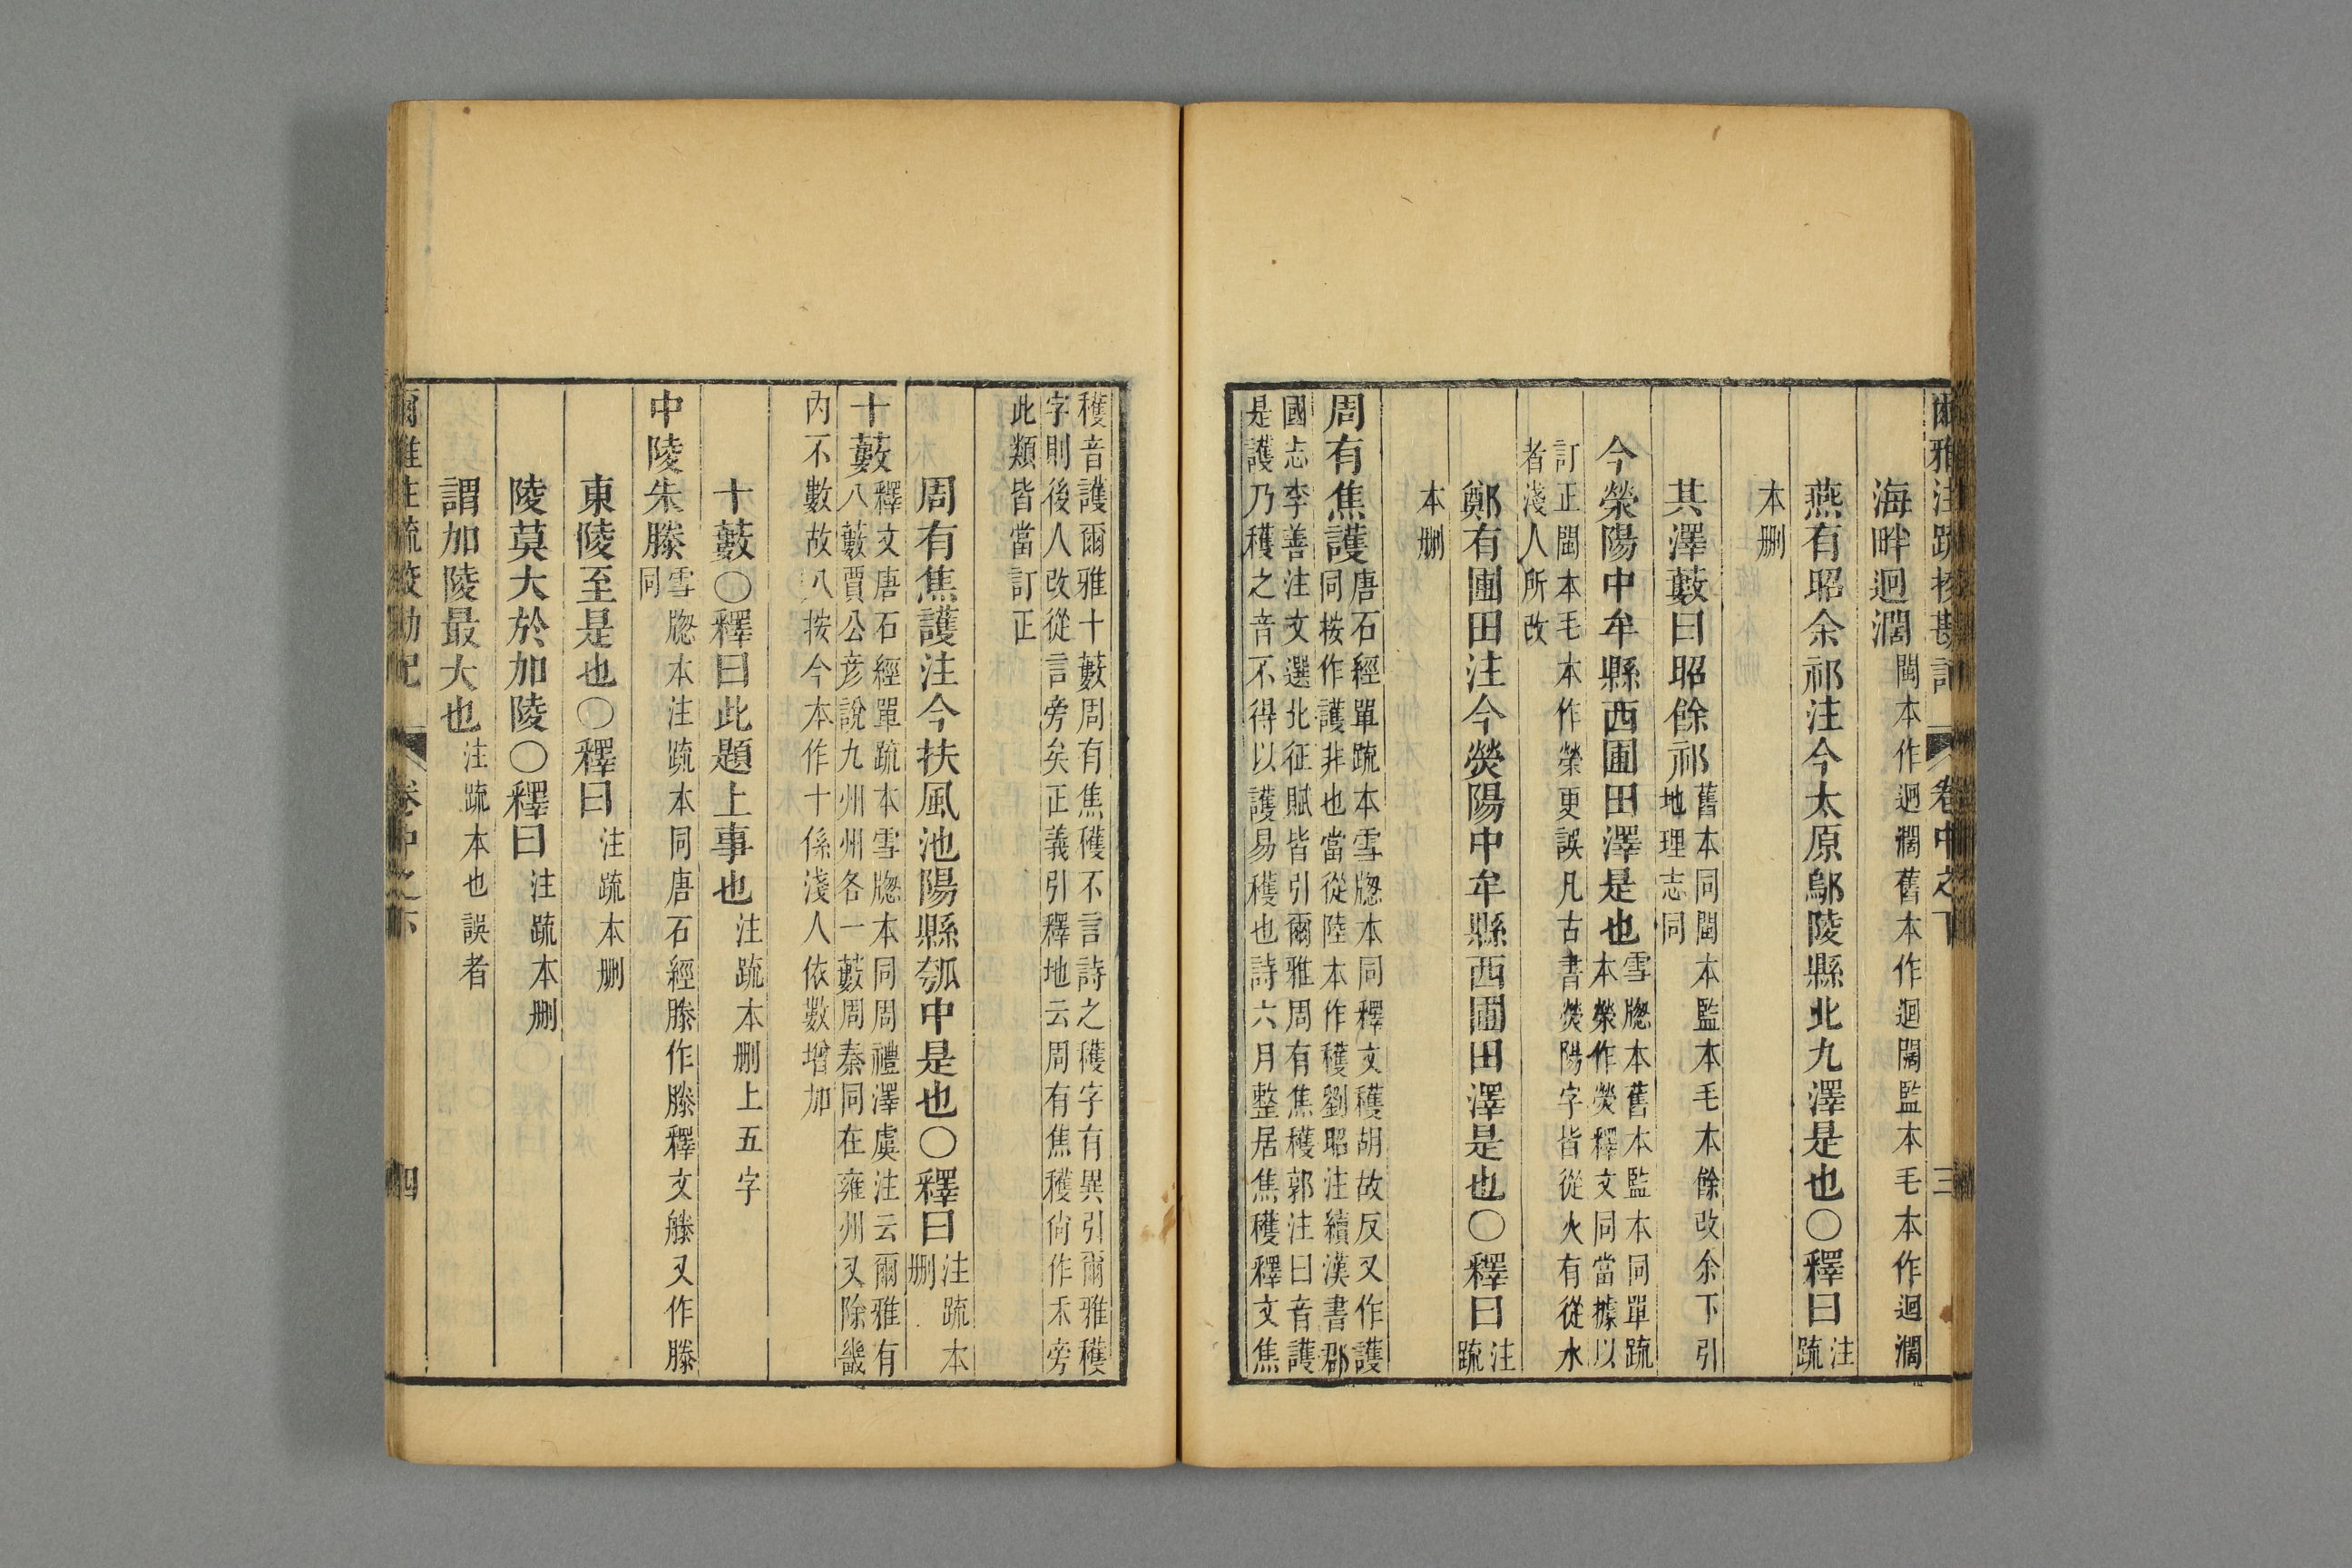 爾雅注疏挍勘記 卷中之下 三
海畔迥濶閩本作迥濶舊本作迥闊監本毛本作迴濶
燕有昭余祁注今太原鄔陵縣北九澤是也〇釋曰注疏
本刪
其澤藪曰昭餘祁舊本同閩本監本毛本餘改余下引
地理志同
今滎陽中牟縣西圃田澤是也雪牕本舊本監本同單疏
本滎作熒釋文同當據以
訂正閩本毛本作榮更誤凡古書熒陽字皆從火有從水
者淺人所改
鄭有圃田注今熒陽中牟縣西圃田澤是也〇釋曰注疏
本刪
周有焦護唐石經單疏本雪牕本同釋文穫胡故反又作護
同按作護非也當從陸本作穫劉昭注續漢書郡
國志李善注文選北征賦皆引爾雅周有焦穫郭注曰音護
是護乃穫之音不得以護易穫也詩六月整居焦穫釋文焦
穫音護爾雅十藪周有焦穫不言詩之穫字有異引爾雅穫
字則後人改從言旁矣正義引釋地云周有焦穫尙作禾旁
此類皆當訂正
周有焦護注今扶風池陽縣瓠中是也〇釋曰注疏本
刪
十藪釋文唐石經單疏本雪牕本同周禮澤虞注云爾雅有
八藪賈公彥說九州州各一藪周秦同在雍州又除畿
內不數故八按今本作十係淺人依數增加
十藪〇釋曰此題上事也注疏本刪上五字
中陵朱滕雪牕本注疏本同唐石經滕作縢釋文螣又作滕
同
東陵至是也〇釋曰注疏本刪
陵莫大於加陵〇釋曰注疏本刪
謂加陵最大也注疏本也誤者
爾雅注疏挍勘記 卷中之下 四